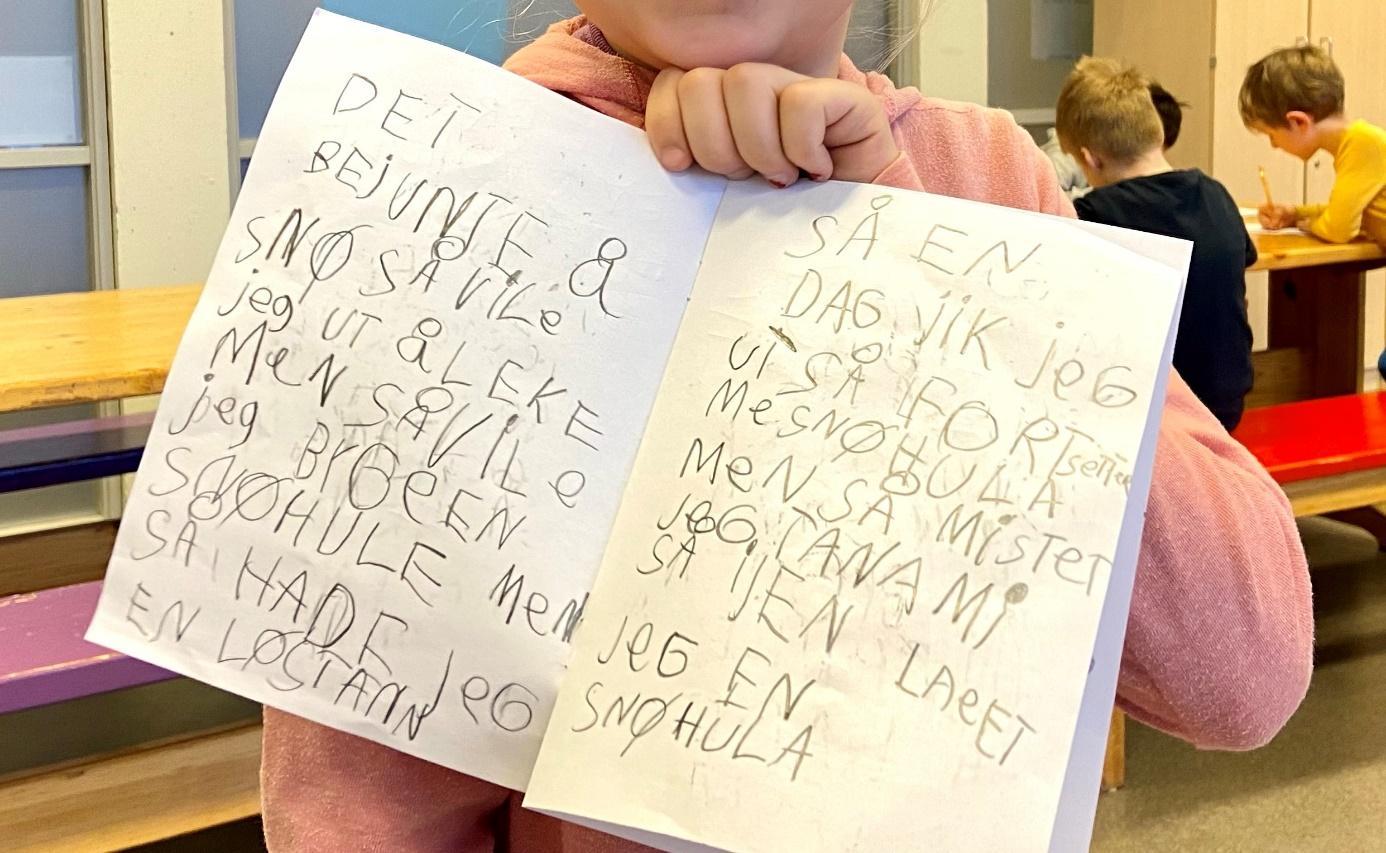 DET
BEjUNTE å
SNØ SÅ VILe
jeg UT åLEKE
MeN SÅ VILe
jeg BYGGeEN
SNØHULE MeN
SÅ HADE JeG
EN LØSTANN
SÅ EN
DAG JIK jeG
UT SÅ FORTsetter
MeSNØHULA
MeN SÅ MiSTeT
JeG TANA Mi
SÅ IJEN LAGET
JeG EN
SNØHULA